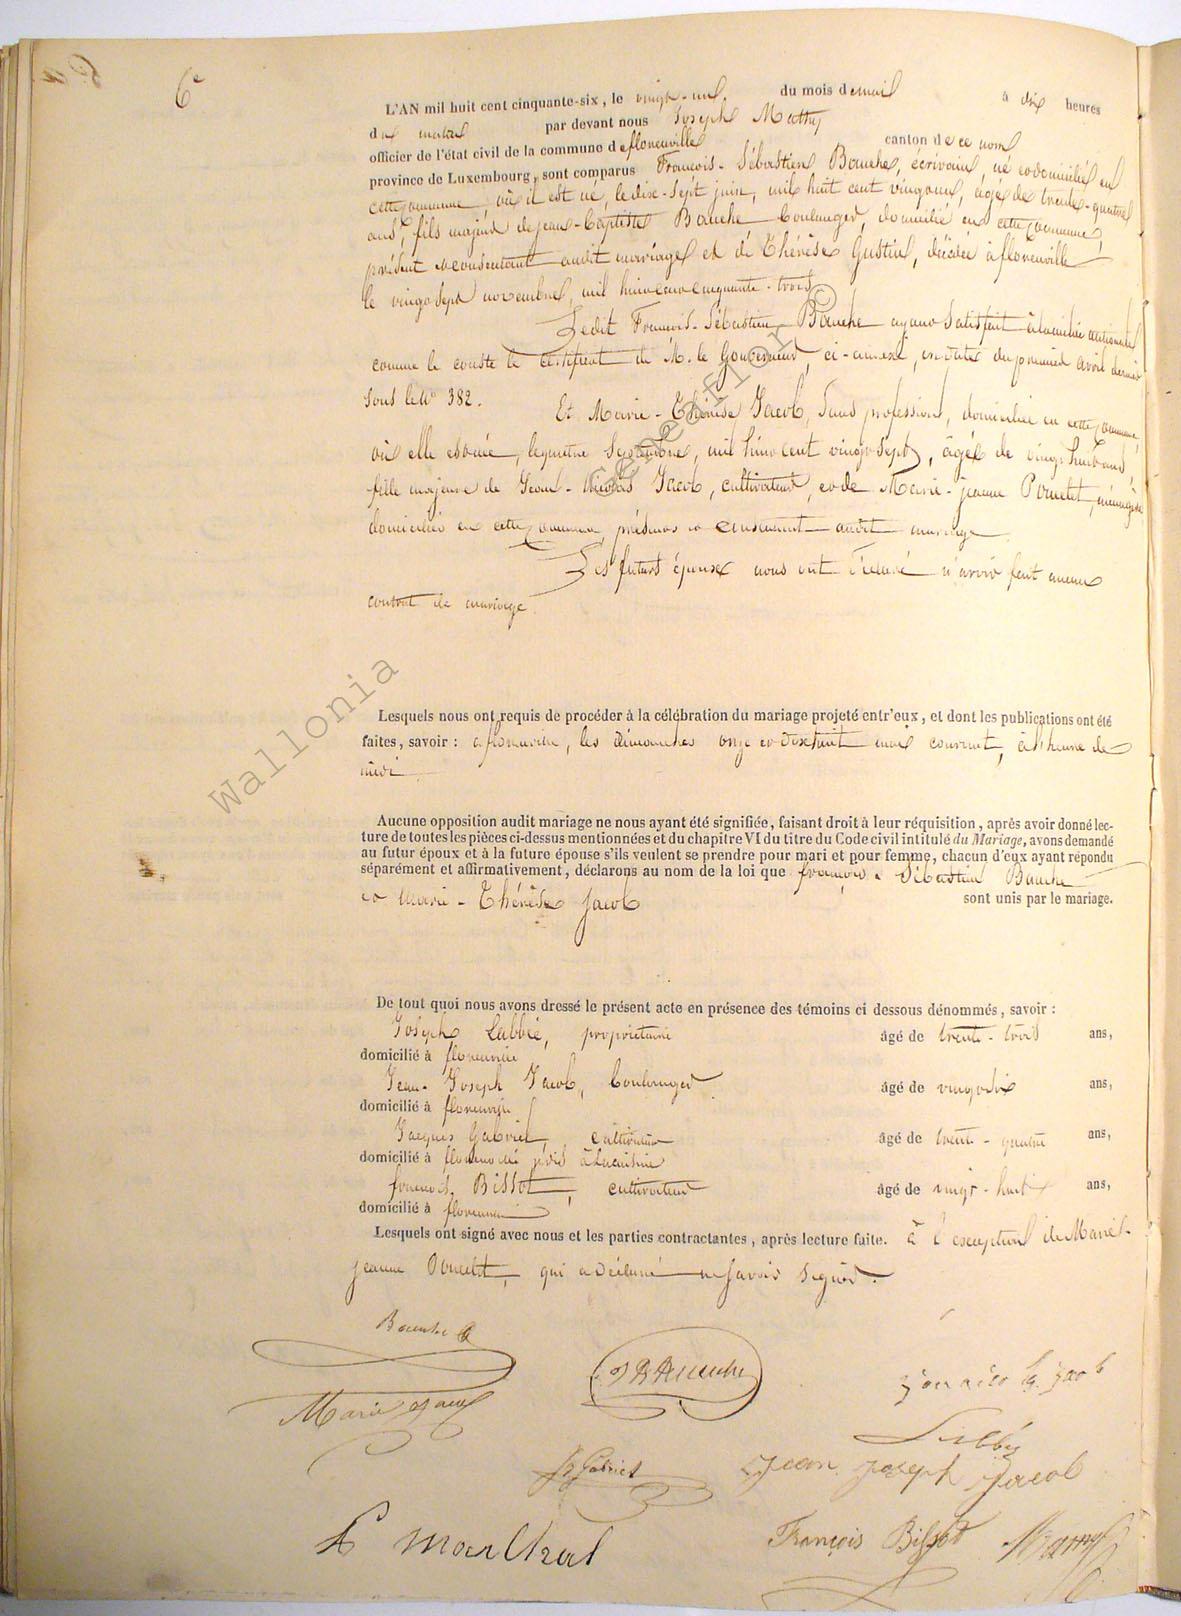 6e
L'AN mil huit cent cinquante-six, le vingt-un du mois de mai à dix heures
du matin par devant nous Joseph Mathy
officier de l'état civil de la commune de florenville canton de ce nom
province de Luxembourg, sont comparus François-Sébastien Bauche, écrivain, né et domicilié en
cette commune, où il est né, le dix-sept juin, mil huit cent vingt-un, agé de trente-quatre
ans, fils majeur de jean-Baptiste Bauche boulanger, domicilié en cette commune,
présent et consentant audit mariage et de Thérèse Gustin, décédée à florenville
le vingt sept novembre, mil huit cent cinquante-trois
Ledit François-Sébastien Bauche ayant satisfait à la milice nationale
comme le conste le certificat de M. le Gouverneur, ci-annexé, en date du premier avril dernier
sous le No 382. Et Marie-Thérèse Jacob, sans profession, domiciliée en cette commune,
où elle est née, le quatre Septembre, mil huit cent vingt-sept, âgée de vingt huit ans
fille majeure de Jean-Nicolas Jacob, cultivateur, et de Marie-jeanne Poncelet, ménagère
domiciliés en cette commune, présens et consentant audit mariage
Les futurs époux nous ont déclaré n'avoir fait aucun
contrat de mariage.
Lesquels nous ont requis de procéder à la célébration du mariage projeté entr'eux, et dont les publications ont été
faites, savoir : a florenville, les dimanches onze et dixhuit mai courant, à l'heure de
midi
Aucune opposition audit mariage ne nous ayant été signifiée, faisant droit à leur réquisition, après avoir donné lec-
ture de toutes les pièces ci-dessus mentionnées et du chapitre VI du titre du Code civil intitulé du Mariage, avons demandé
au futur époux et à la future épouse s'ils veulent se prendre pour mari et pour femme, chacun d'eux ayant répondu
séparément et affirmativement, déclarons au nom de la loi que françois-Sébastien Bauche
et Marie-Thérèse Jacob sont unis par le mariage.
De tout quoi nous avons dressé le présent acte en présence des témoins ci dessous dénommés, savoir :
Joseph Labbé, propriétaire âgé de trente-trois ans,
domicilié à florenville
Jean-Joseph Jacob, boulanger âgé de vingt-six ans,
domicilié à florenville
Jacques Gabriel, cultivateur âgé de trente-quatre ans,
domicilié à
françois Bissot, cultivateur âgé de vingt-huit ans,
domicilié à florenville
Lesquels ont signé avec nous et les parties contractantes, après lecture faite. à l'exception de Marie-
jeanne Poncelet, qui a déclaré ne savoir signer.
Bauche
J B Bauche
Jacob
Marie Jacob
Labbé
J Gabriel
Jean Joseph Jacob
François Bissot
Mathy
Wallonia
Geneaflor ©